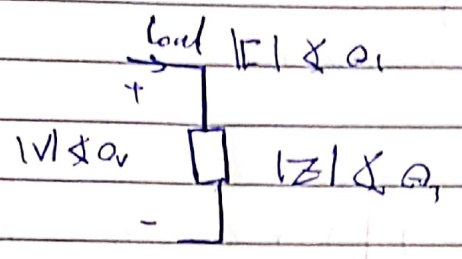 load |I| ∡ θ₁
+
|V| ∡ θᵥ |Z| ∡ θ₃
-